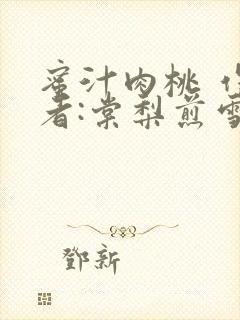 蜜汁肉桃
者:棠梨煎雪
鄧新